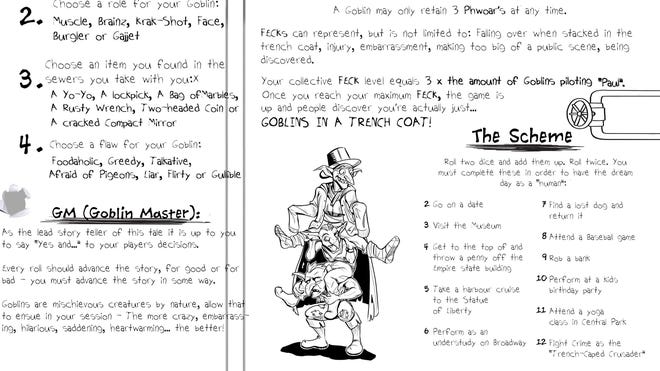 2. Choose a role for your Goblin:
Muscle, Brainz, Krak-Shot, Face,
Burgler or Gajjet
3. Choose an item you found in the
sewers you take with you:x
A Yo-Yo, A lockpick, A Bag of Marbles,
A Rusty Wrench, Two-headed Coin or
A cracked Compact Mirror
4. Choose a flaw for your Goblin:
Foodaholic, Greedy, Talkative,
Afraid of Pigeons, Liar, Flirty or Gullible
GM (Goblin Master):
As the lead story teller of this tale it is up to you
to say "Yes and..." to your players decisions.
Every roll should advance the story, for good or for
bad - you must advance the story in some way.
Goblins are mischievous creatures by nature, alow that
to ensue in your session - The more crazy, embarrass-
ing, hilarious, saddening, heartwarming... the better!
A Goblin may only retain 3 Phwoar's at any time.
FECKs can represent, but is not limited to: Faling over when stacked in the
trench coat, injury, embarrassment, making too big of a public scene, being
discovered.
Your collective FECK level equals 3 x the amount of Goblins piloting "Paul".
Once you reach your maximum FECK, the game is
up and people discover you're actually just...
GOBLINS IN A TRENCH COAT!
The Scheme
Roll two dice and add them up. Roll twice. You
must complete these in order to have the dream
day as a "human":
2 Go on a date
3 Visit the Museum
4 Get to the top of and
throw a penny off the
Empire state building
5 Take a harbour cruise
to the Statue
of Liberty
6 Perform as an
understudy on Broadway
7 Find a lost dog and
return it
8 Attend a Basebal game
9 Rob a bank
10 Perform at a Kids
birthday party
11 Attend a yoga
class in Central Park
12 Fight Crime as the
"Trench-Caped Crusader"